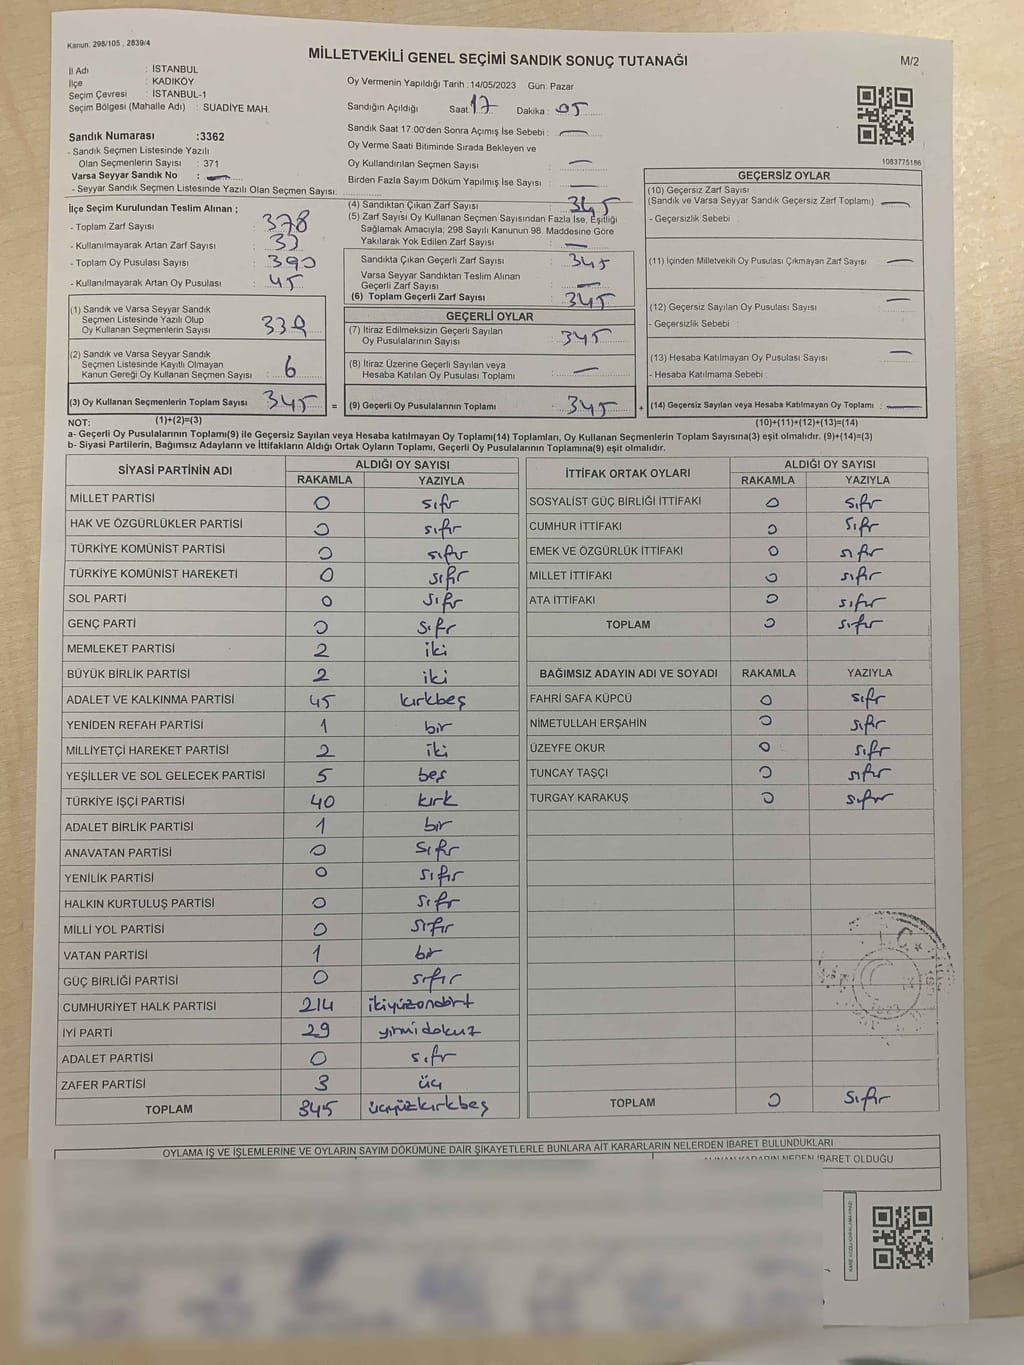 Kanun: 298/105 , 2839/4
MİLLETVEKİLİ GENEL SEÇİMİ SANDIK SONUÇ TUTANAĞI
M/2
İl Adı : İSTANBUL
İlçe : KADIKÖY
Seçim Çevresi : İSTANBUL-1
Seçim Bölgesi (Mahalle Adı) : SUADİYE MAH.
Oy Vermenin Yapıldığı Tarih :14/05/2023 Gün: Pazar
Sandığın Açıldığı Saat: 17 Dakika : 05
Sandık Saat 17:00'den Sonra Açımış İse Sebebi : —
Oy Verme Saati Bitiminde Sırada Bekleyen ve
Oy Kullandırılan Seçmen Sayısı : —
Birden Fazla Sayım Döküm Yapılmış İse Sayısı : —
1083775186
Sandık Numarası :3362
- Sandık Seçmen Listesinde Yazılı
Olan Seçmenlerin Sayısı : 371
Varsa Seyyar Sandık No : —
- Seyyar Sandık Seçmen Listesinde Yazılı Olan Seçmen Sayısı:
İlçe Seçim Kurulundan Teslim Alınan ;
- Toplam Zarf Sayısı : 378
- Kullanılmayarak Artan Zarf Sayısı : 33
- Toplam Oy Pusulası Sayısı : 390
- Kullanılmayarak Artan Oy Pusulası : 45
(1) Sandık ve Varsa Seyyar Sandık
Seçmen Listesinde Yazılı Olup
Oy Kullanan Seçmenlerin Sayısı : 339
(2) Sandık ve Varsa Seyyar Sandık
Seçmen Listesinde Kayıtlı Olmayan
Kanun Gereği Oy Kullanan Seçmen Sayısı : 6
(3) Oy Kullanan Seçmenlerin Toplam Sayısı : 345 =
(4) Sandıktan Çıkan Zarf Sayısı : 345
(5) Zarf Sayısı Oy Kullanan Seçmen Sayısından Fazla İse, Eşitliği
Sağlamak Amacıyla; 298 Sayılı Kanunun 98. Maddesine Göre
Yakılarak Yok Edilen Zarf Sayısı : —
Sandıkta Çıkan Geçerli Zarf Sayısı : 345
Varsa Seyyar Sandıktan Teslim Alınan
Geçerli Zarf Sayısı : —
(6) Toplam Geçerli Zarf Sayısı : 345
GEÇERLİ OYLAR
(7) İtiraz Edilmeksizin Geçerli Sayılan
Oy Pusulalarının Sayısı : 345
(8) İtiraz Üzerine Geçerli Sayılan veya
Hesaba Katılan Oy Pusulası Toplamı : —
(9) Geçerli Oy Pusulalarının Toplamı : 345 +
GEÇERSİZ OYLAR
(10) Geçersiz Zarf Sayısı
(Sandık ve Varsa Seyyar Sandık Geçersiz Zarf Toplamı) : —
- Geçersizlik Sebebi :
(11) İçinden Milletvekili Oy Pusulası Çıkmayan Zarf Sayısı : —
(12) Geçersiz Sayılan Oy Pusulası Sayısı : —
- Geçersizlik Sebebi :
(13) Hesaba Katılmayan Oy Pusulası Sayısı : —
- Hesaba Katılmama Sebebi :
(14) Geçersiz Sayılan veya Hesaba Katılmayan Oy Toplamı : —
NOT: (1)+(2)=(3) (10)+(11)+(12)+(13)=(14)
a- Geçerli Oy Pusulalarının Toplamı(9) ile Geçersiz Sayılan veya Hesaba katılmayan Oy Toplamı(14) Toplamları, Oy Kullanan Seçmenlerin Toplam Sayısına(3) eşit olmalıdır. (9)+(14)=(3)
b- Siyasi Partilerin, Bağımsız Adayların ve İttifakların Aldığı Ortak Oyların Toplamı, Geçerli Oy Pusulalarının Toplamına(9) eşit olmalıdır.
SİYASİ PARTİNİN ADI ALDIĞI OY SAYISI
RAKAMLA YAZIYLA
MİLLET PARTİSİ 0 sıfır
HAK VE ÖZGÜRLÜKLER PARTİSİ 0 sıfır
TÜRKİYE KOMÜNİST PARTİSİ 0 sıfır
TÜRKİYE KOMÜNİST HAREKETİ 0 sıfır
SOL PARTİ 0 sıfır
GENÇ PARTİ 0 sıfır
MEMLEKET PARTİSİ 2 iki
BÜYÜK BİRLİK PARTİSİ 2 iki
ADALET VE KALKINMA PARTİSİ 45 kırkbeş
YENİDEN REFAH PARTİSİ 1 bir
MİLLİYETÇİ HAREKET PARTİSİ 2 iki
YEŞİLLER VE SOL GELECEK PARTİSİ 5 beş
TÜRKİYE İŞÇİ PARTİSİ 40 kırk
ADALET BİRLİK PARTİSİ 1 bir
ANAVATAN PARTİSİ 0 sıfır
YENİLİK PARTİSİ 0 sıfır
HALKIN KURTULUŞ PARTİSİ 0 sıfır
MİLLİ YOL PARTİSİ 0 sıfır
VATAN PARTİSİ 1 bir
GÜÇ BİRLİĞİ PARTİSİ 0 sıfır
CUMHURİYET HALK PARTİSİ 214 ikiyüzondört
İYİ PARTİ 29 yirmidokuz
ADALET PARTİSİ 0 sıfır
ZAFER PARTİSİ 3 üç
TOPLAM 345 üçyüzkırkbeş
İTTİFAK ORTAK OYLARI ALDIĞI OY SAYISI
RAKAMLA YAZIYLA
SOSYALİST GÜÇ BİRLİĞİ İTTİFAKI 0 sıfır
CUMHUR İTTİFAKI 0 sıfır
EMEK VE ÖZGÜRLÜK İTTİFAKI 0 sıfır
MİLLET İTTİFAKI 0 sıfır
ATA İTTİFAKI 0 sıfır
TOPLAM 0 sıfır
BAĞIMSIZ ADAYIN ADI VE SOYADI RAKAMLA YAZIYLA
FAHRİ SAFA KÜPCÜ 0 sıfır
NİMETULLAH ERŞAHİN 0 sıfır
ÜZEYFE OKUR 0 sıfır
TUNCAY TAŞÇI 0 sıfır
TURGAY KARAKUŞ 0 sıfır
T.C.
TOPLAM 0 sıfır
OYLAMA İŞ VE İŞLEMLERİNE VE OYLARIN SAYIM DÖKÜMÜNE DAİR ŞİKAYETLERLE BUNLARA AİT KARARLARIN NELERDEN İBARET BULUNDUKLARI
KARARIN NEDEN İBARET OLDUĞU